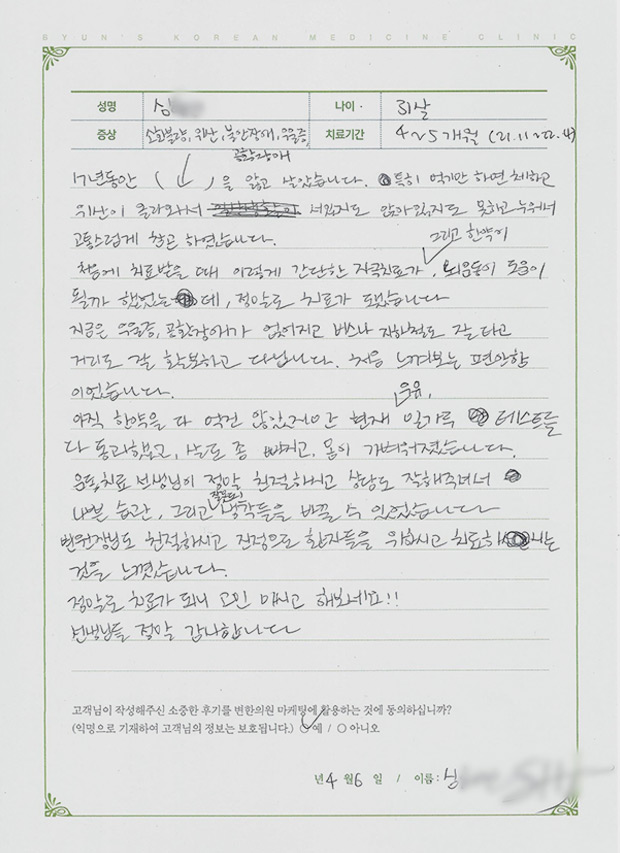 BYUN'S KOREAN MEDICINE CLINIC
성명 심 나이 · 31살
증상 소화불량, 위산, 불안장애, 우울증, 공황장애 치료기간 4~5개월 (21.11~22.4)
17년동안 ( ↓ )을 앓고 살았습니다. 특히 먹기만 하면 체하고
위산이 올라와서 서있지도 앉아있지도 못하고 누워서
고통스럽게 참곤 하였습니다.
처음에 치료받을 때 이렇게 간단한 자극치료가, 그리고 한약이 뇌운동이 도움이
될까 했었는데, 정말로 치료가 됐었습니다
지금은 우울증, 공황장애가 없어지고 버스나 지하철도 잘 타고
거리도 잘 활보하고 다닙니다. 처음 느껴보는 편안함
이었습니다.
아직 한약을 다 먹진 않았지만 현재 우유, 밀가루 테스트를
다 통과했고, 살도 좀 빠지고, 몸이 가벼워졌습니다.
운동치료 선생님이 정말 친절하시고 상담도 잘해주셔서
나쁜 습관, 그리고 잘못된 생각들을 바꿀 수 있었습니다
변원장님도 친절하시고 진정으로 환자들을 위하시고 치료하시는
것을 느꼈습니다.
정말로 치료가 되니 고민 마시고 해보세요!!
선생님들 정말 감사합니다
고객님이 작성해주신 소중한 후기를 변한의원 마케팅에 활용하는 것에 동의하십니까?
(익명으로 기재하여 고객님의 정보는 보호됩니다.) ○ 예 / ○ 아니오
년 4 월 6 일 / 이름: 심